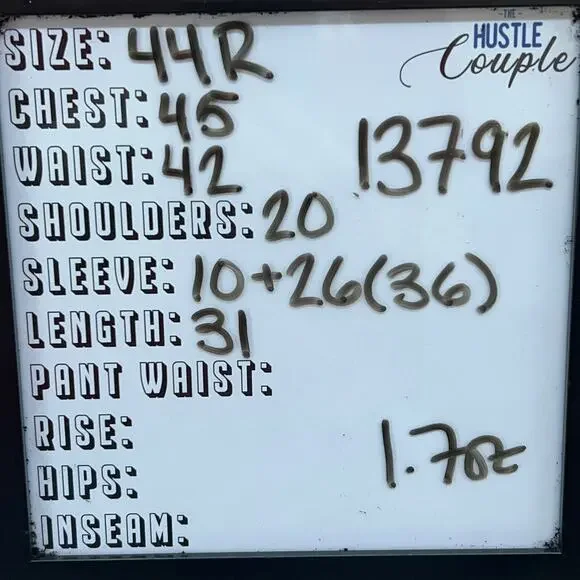 THE
HUSTLE
Couple
SIZE: 44R
CHEST: 45
13792
WAIST: 42
SHOULDERS: 20
SLEEVE: 10+26(36)
LENGTH: 31
PANT WAIST:
RISE:
1.7oz
HIPS:
INSEAM: